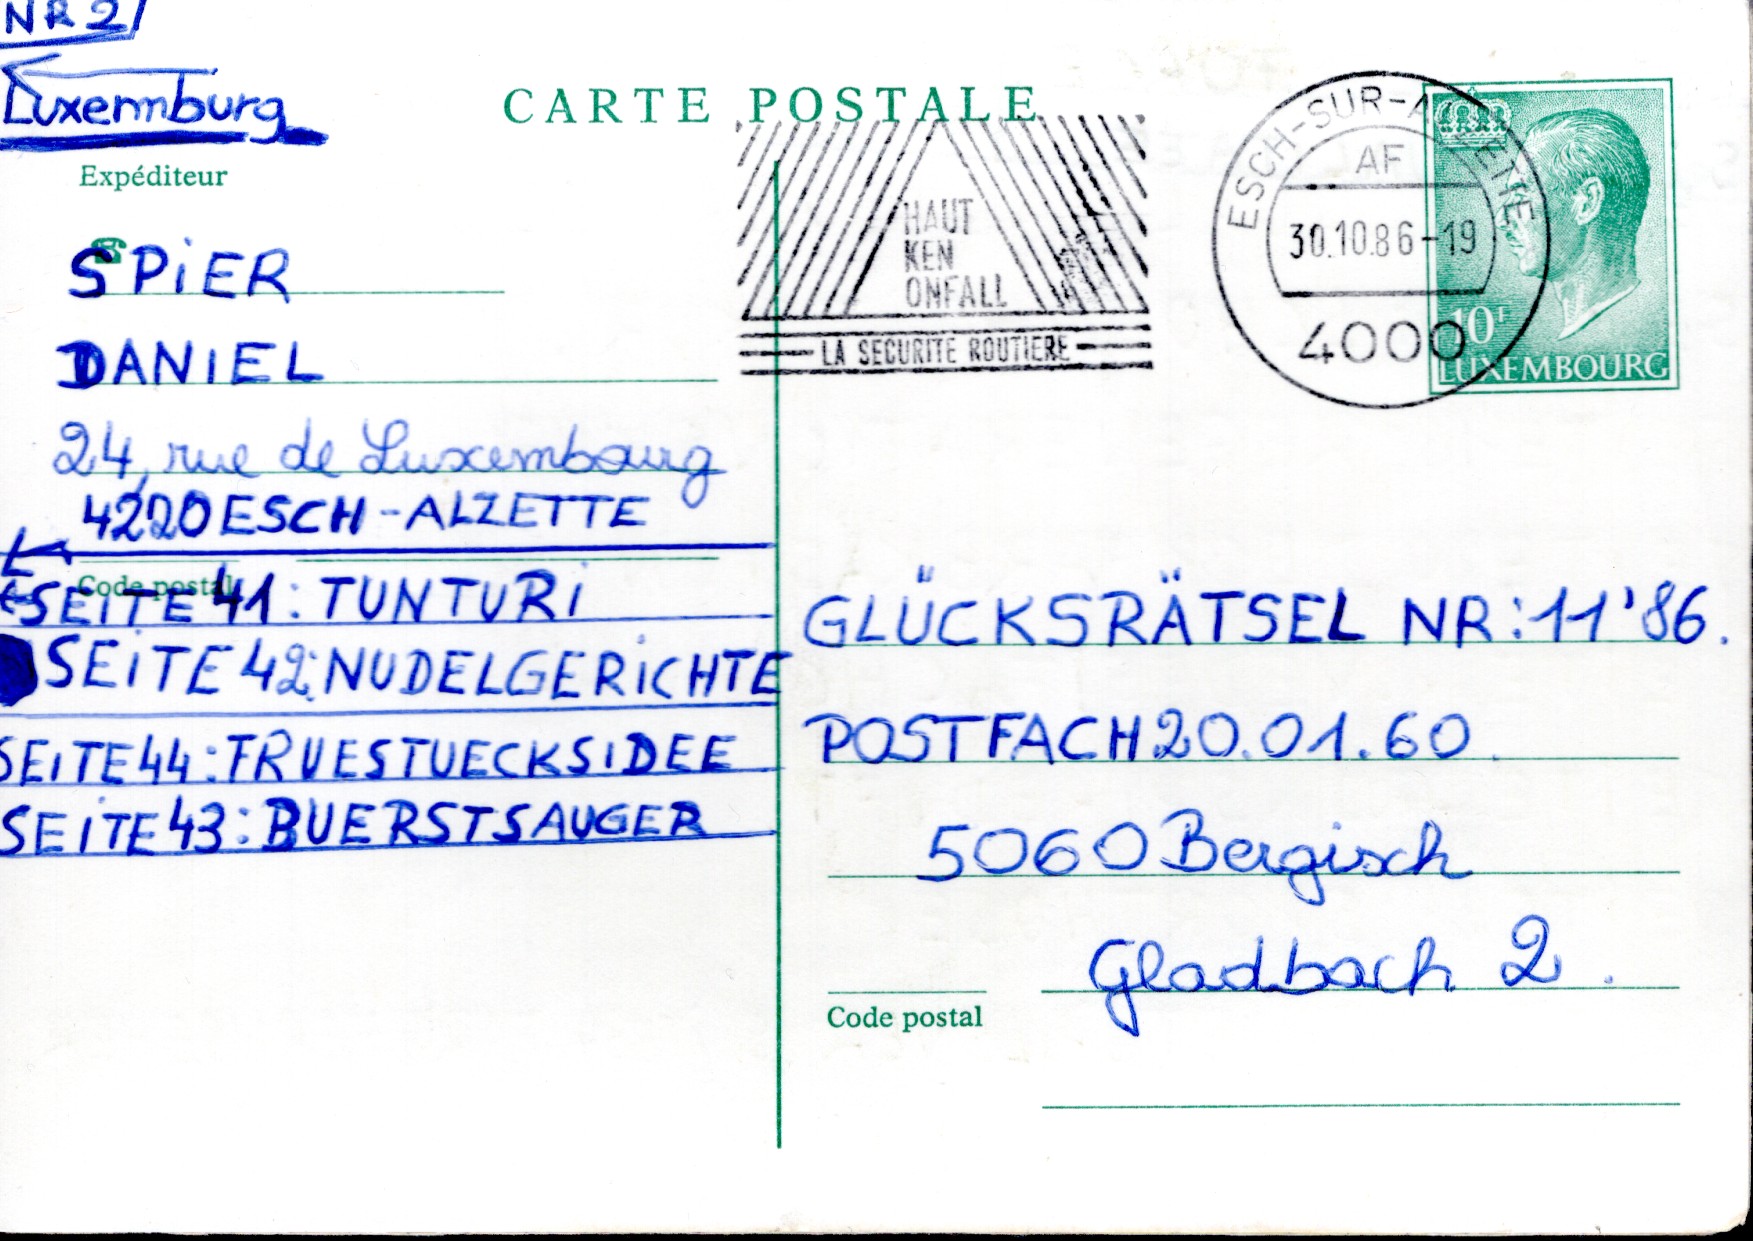 NR 2
Luxemburg
CARTE POSTALE
Expéditeur
SPiER
DANiEL
24, rue de Luxembourg
4220 ESCH-ALZETTE
Code postal
SEiTE 41: TUNTURi
SEiTE 42: NUDELGERiCHTE
SEiTE 44: FRUESTUECKSiDEE
SEiTE 43: BUERSTSAUGER
HAUT
KEN
ONFALL
LA SECURITE ROUTIERE
ESCH-SUR-ALZETTE
AF
30.10.86-19
4000
10F
LUXEMBOURG
GLÜCKSRÄTSEL NR:11'86.
POSTFACH 20.01.60.
5060 Bergisch
Gladbach 2.
Code postal